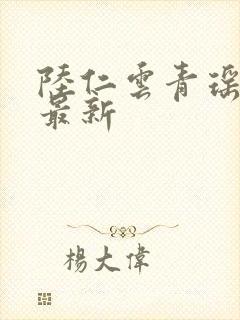 陸仁雲青瑶
最新
楊大偉